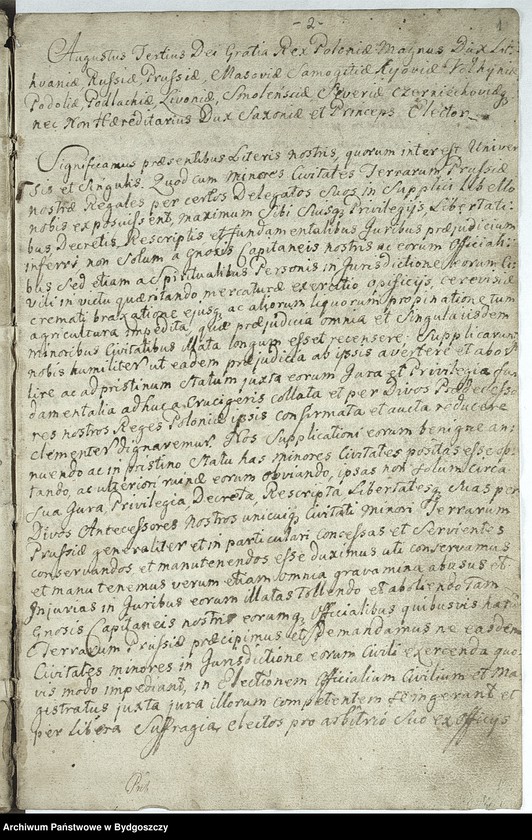 - 2 -
1
Augustus Tertius Dei Gratia Rex Poloniæ Magnus Dux Lit-
huaniæ, Russiæ Prussiæ, Masoviæ Samogitiæ Kyoviæ Volhyniæ
Podoliæ Podlachiæ, Livoniæ, Smolensciæ Severiæ Czerniechoviæq
nec Non Hæreditarius Dux Saxoniæ et Princeps Elector
Significamus præsentibus Literis nostris, quorum interest Univer
sis et Singulis. Quod cum minores Civitates Terrarum Prussiæ
nostræ Regales per certos Delegatos Suos in Supplici libello
nobis exposuissent, maximum Sibi Suisq Privilegijs Libertati-
bus Decretis Rescriptis et fundamentalibus Juribus præjudicium
inferri non Solum a Gnosis Capitaneis nostris ac eorum Officiali-
bus Sed etiam a Spiritualibus Personis in Jurisdictione eorum Ci-
vili in victu quæritando, mercaturæ exercitio opificijs, cerevisiæ
cremati braxatione ejusq ac aliorum liquorum propinatione tum
agricultura impedita, quæ præjudicia omnia et Singula iisdem
minoribus Civitatibus illata longum esset recensere; Supplicarunt
nobis humiliter ut eadem præjudicia ab ipsis avertere et abo-
lire, ac ad pristinum Statum juxta eorum Jura et Privilegia fun
damentalia adhuc a Crucigeris collata et per Divos Prædecesso
res nostros Reges Poloniæ ipsis confirmata et aucta reducere
clementer dignaremur. Nos Supplicationi eorum benigne an-
nuendo ac in pristino Statu has minores Civitates positas esse op-
tando, ac ulteriori ruinæ eorum obviando, ipsas non Solum circa
Sua Jura, Privilegia, Decreta, Rescripta Libertatesq Suas per
Divos Antecessores Nostros unicuiq Civitati minori Terrarum
Prussiæ generaliter et in particulari concessas et Servientes
conservandos et manutenendos esse duximus uti conservamus
et manutenemus verum etiam omnia gravamina abusus et
Injurias in Juribus eorum illatas Tollendo et abolendo Tam
Gnosis Capitaneis nostris eorumq Officialibus quibusvis harum
Terrarum Prussiæ præcipimus et demandamus ne easdem
Civitates minores in Jurisdictione eorum Civili exercenda quo
vis modo impediant, in electionem Officialium Civilium et Ma
gistratus juxta jura illorum competentem se ingerant et
per libera Suffragia electos pro arbitrio Suo ex Officijs
Archiwum Państwowe w Bydgoszczy